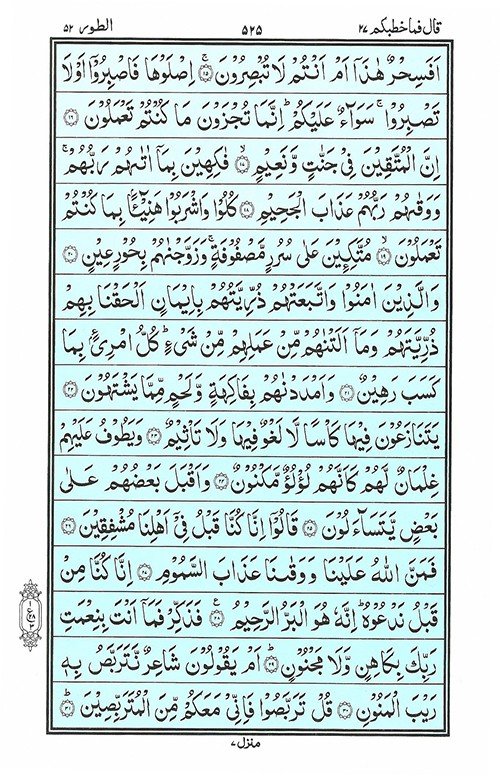 قال فما خطبكم ٢٧ ٥٢٥ الطور ٥٢
اَفَسِحْرٌ هٰذَاۤ اَمْ اَنْتُمْ لَا تُبْصِرُوْنَ ۚ﴿۱۵﴾ اِصْلَوْهَا فَاصْبِرُوْۤا اَوْ لَا
تَصْبِرُوْا ۚ سَوَآءٌ عَلَیْكُمْ ؕ اِنَّمَا تُجْزَوْنَ مَا كُنْتُمْ تَعْمَلُوْنَ ﴿۱۶﴾
اِنَّ الْمُتَّقِیْنَ فِیْ جَنّٰتٍ وَّ نَعِیْمٍ ۙ﴿۱۷﴾ فٰكِهِیْنَ بِمَاۤ اٰتٰىهُمْ رَبُّهُمْ ۚ
وَ وَقٰىهُمْ رَبُّهُمْ عَذَابَ الْجَحِیْمِ ﴿۱۸﴾ كُلُوْا وَ اشْرَبُوْا هَنِیْٓـًٔۢا بِمَا كُنْتُمْ
تَعْمَلُوْنَ ۙ﴿۱۹﴾ مُتَّكِـِٕیْنَ عَلٰی سُرُرٍ مَّصْفُوْفَةٍ ۚ وَ زَوَّجْنٰهُمْ بِحُوْرٍ عِیْنٍ ﴿۲۰﴾
وَ الَّذِیْنَ اٰمَنُوْا وَ اتَّبَعَتْهُمْ ذُرِّیَّتُهُمْ بِاِیْمَانٍ اَلْحَقْنَا بِهِمْ
ذُرِّیَّتَهُمْ وَ مَاۤ اَلَتْنٰهُمْ مِّنْ عَمَلِهِمْ مِّنْ شَیْءٍ ؕ كُلُّ امْرِئٍۭ بِمَا
كَسَبَ رَهِیْنٌ ﴿۲۱﴾ وَ اَمْدَدْنٰهُمْ بِفَاكِهَةٍ وَّ لَحْمٍ مِّمَّا یَشْتَهُوْنَ ﴿۲۲﴾
یَتَنَازَعُوْنَ فِیْهَا كَاْسًا لَّا لَغْوٌ فِیْهَا وَ لَا تَاْثِیْمٌ ﴿۲۳﴾ وَ یَطُوْفُ عَلَیْهِمْ
غِلْمَانٌ لَّهُمْ كَاَنَّهُمْ لُؤْلُؤٌ مَّكْنُوْنٌ ﴿۲۴﴾ وَ اَقْبَلَ بَعْضُهُمْ عَلٰی
بَعْضٍ یَّتَسَآءَلُوْنَ ﴿۲۵﴾ قَالُوْۤا اِنَّا كُنَّا قَبْلُ فِیْۤ اَهْلِنَا مُشْفِقِیْنَ ﴿۲۶﴾
فَمَنَّ اللّٰهُ عَلَیْنَا وَ وَقٰىنَا عَذَابَ السَّمُوْمِ ﴿۲۷﴾ اِنَّا كُنَّا مِنْ
قَبْلُ نَدْعُوْهُ ؕ اِنَّهٗ هُوَ الْبَرُّ الرَّحِیْمُ ﴿۲۸﴾ فَذَكِّرْ فَمَاۤ اَنْتَ بِنِعْمَتِ
رَبِّكَ بِكَاهِنٍ وَّ لَا مَجْنُوْنٍ ؕ﴿۲۹﴾ اَمْ یَقُوْلُوْنَ شَاعِرٌ نَّتَرَبَّصُ بِهٖ
رَیْبَ الْمَنُوْنِ ﴿۳۰﴾ قُلْ تَرَبَّصُوْا فَاِنِّیْ مَعَكُمْ مِّنَ الْمُتَرَبِّصِیْنَ ؕ﴿۳۱﴾
منزل ٧